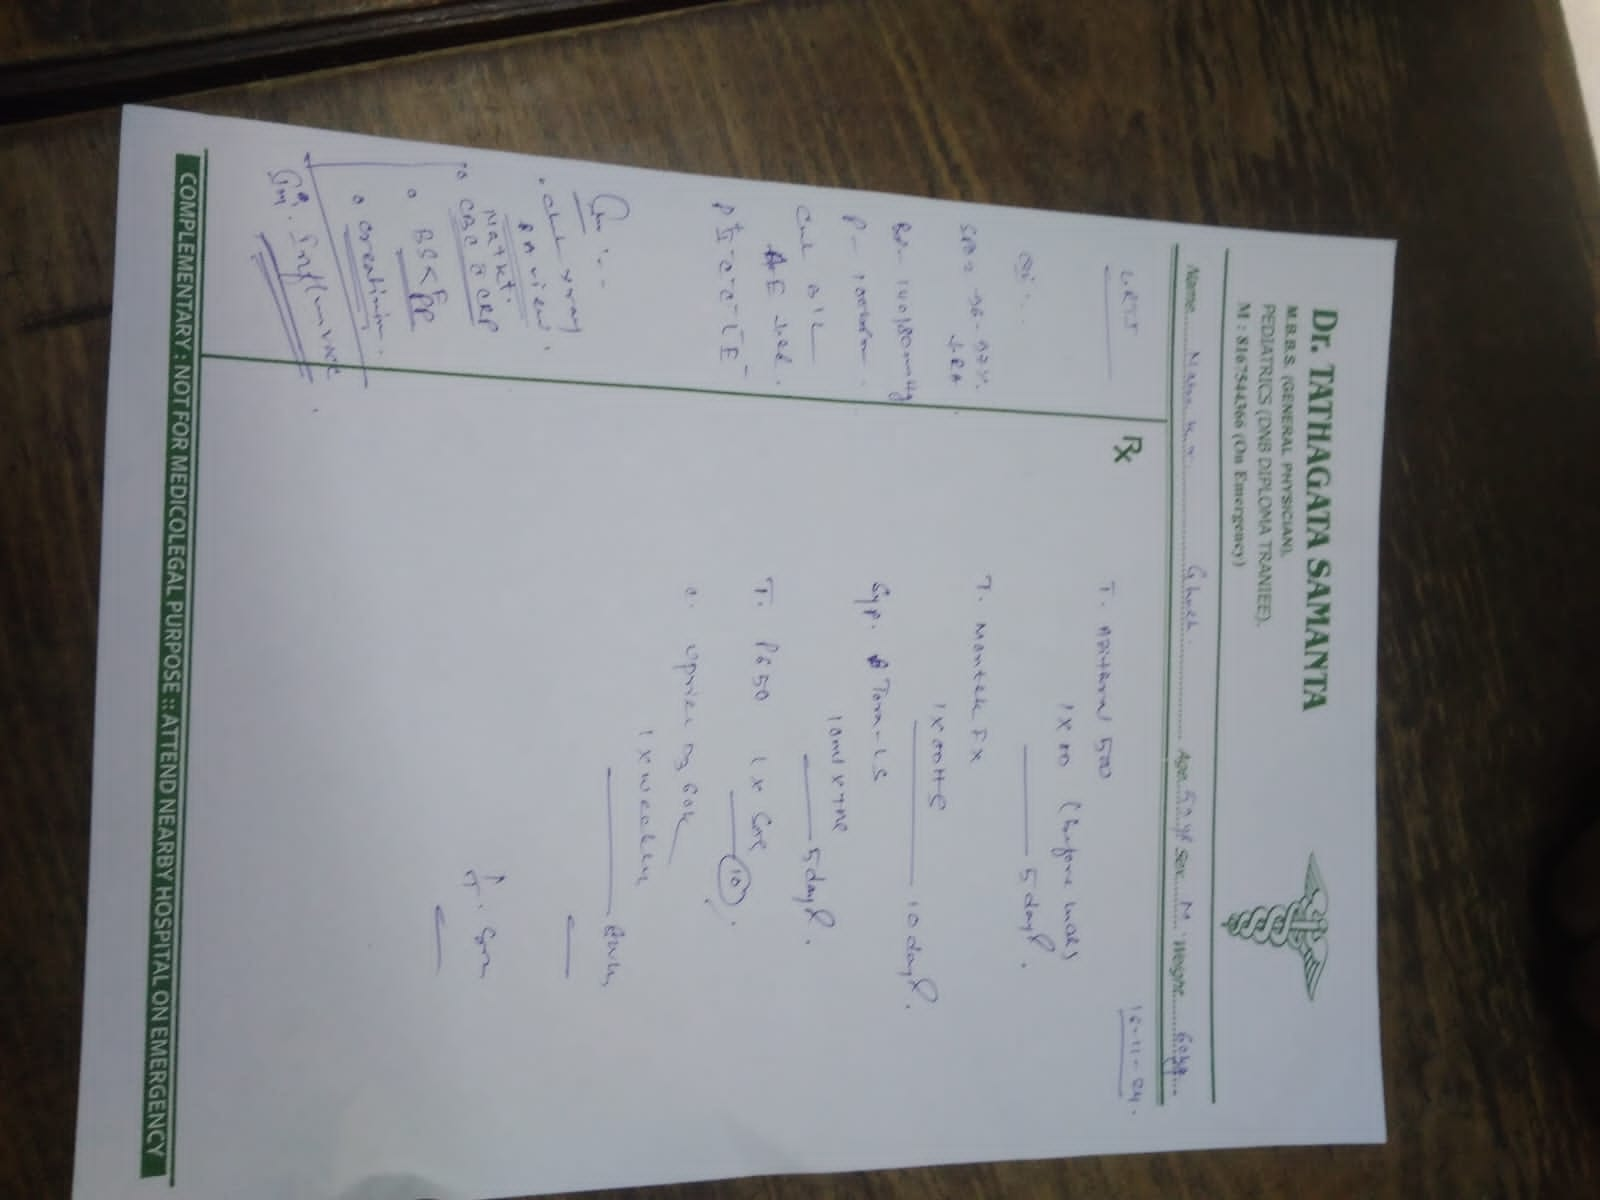 Dr. TATHAGATA SAMANTA
M.B.B.S. (GENERAL PHYSICIAN).
PEDIATRICS (DNB DIPLOMA TRANIEE).
M : 8167544366 (On Emergency)
Name Ghosh. Age 50 yr Sex M Weight 60kg
16-11-24.
URTI
O/E:-
SPO2 96-97%
↓RA
BP- 140/80mmHg
P- 100bpm.
Chest B/L
AE
Chest xray
PA view.
Na+ K+.
CBC CRP
creatinine.
Rx
T. Azithral 500
1 x OD (before meal)
5 days.
T. Montek FX
1 x OD HS
10 days.
Syp. Tora-LS
10ml x TME
5 days.
T. P650 1 x SOS
10
C. Uprise D3 60K
1 x weekly
COMPLEMENTARY : NOT FOR MEDICOLEGAL PURPOSE :: ATTEND NEARBY HOSPITAL ON EMERGENCY